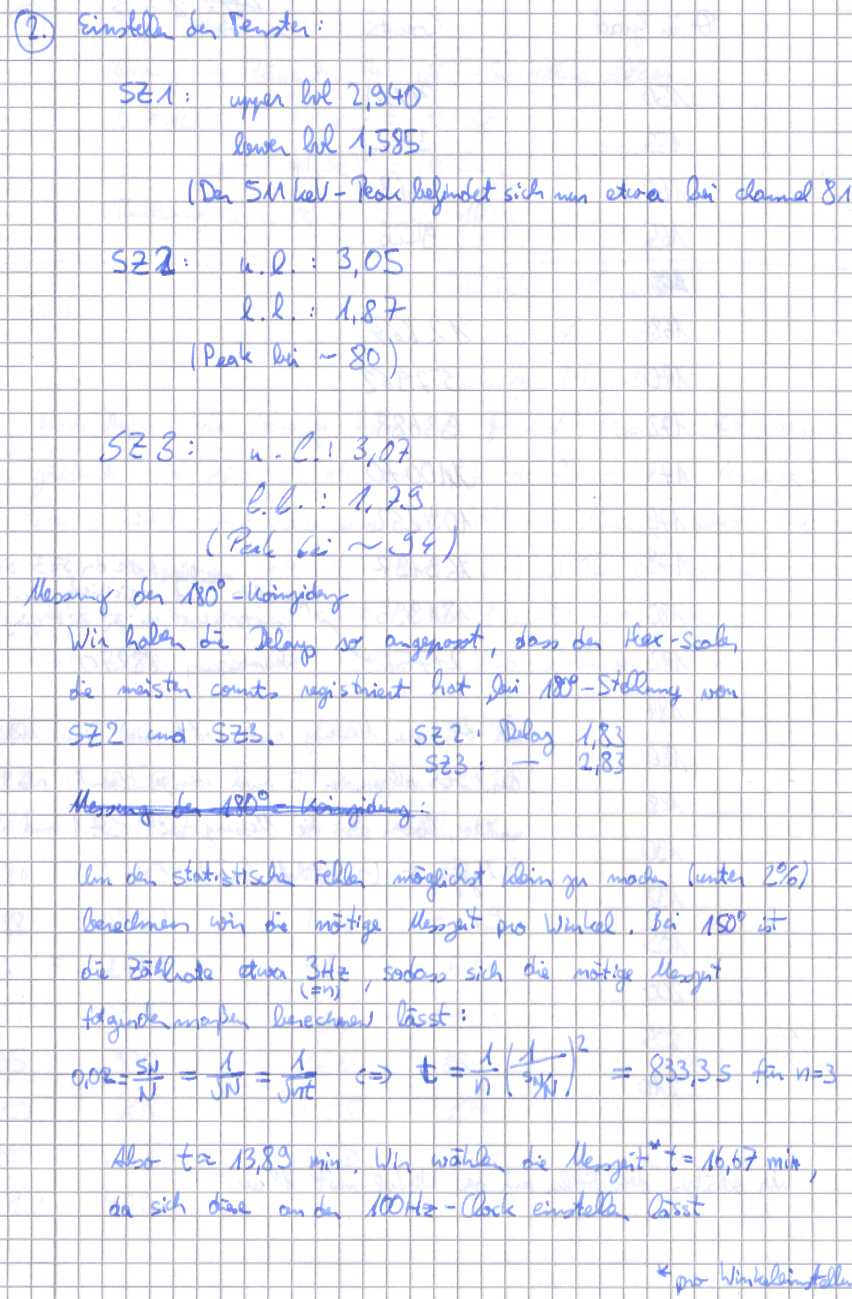 2. Einstellen der Fenster:
SZ1: upper lvl 2,940
lower lvl 1,585
(Der 511 keV-Peak befindet sich nun etwa bei channel 81
SZ2: u.l.: 3,05
l.l.: 1,87
(Peak bei ~ 80)
SZ3: u.l.: 3,07
l.l.: 1,79
(Peak bei ~ 94)
Messung der 180°-Koinzidenz
Wir haben die Delays so angepasst, dass der Hex-Scaler
die meisten counts registriert hat bei 180°-Stellung von
SZ2 und SZ3. SZ2: Delay 1,83
SZ3: — 2,83
Messung der 180°-Koinzidenz:
Um den statistischen Fehler möglichst klein zu machen (unter 2%)
berechnen wir die nötige Messzeit pro Winkel. Bei 150° ist
die Zählrate etwa 3Hz, sodass sich die nötige Messzeit
(=n)
folgendermaßen berechnen lässt:
0,02 = SN/N = 1/√N = 1/√nt ⇔ t = 1/n (1/(SN/N))² = 833,3 s für n=3
Also t ≈ 13,89 min. Wir wählen die Messzeit* t = 16,67 min,
da sich diese an der 100Hz-Clock einstellen lässt
* pro Winkeleinstellu